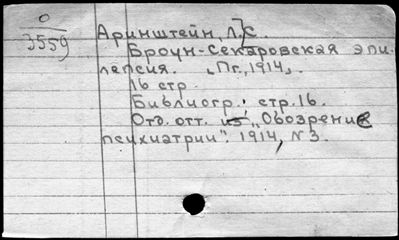 О
3559
Аринштейн, Л. С.
Броун-Секаровская эпи-
лепсия. „Пг., 1914„.
16 стр.
Библиогр.: стр. 16.
Отд. отт. из „Обозрение
психиатрии". 1914, N 3.